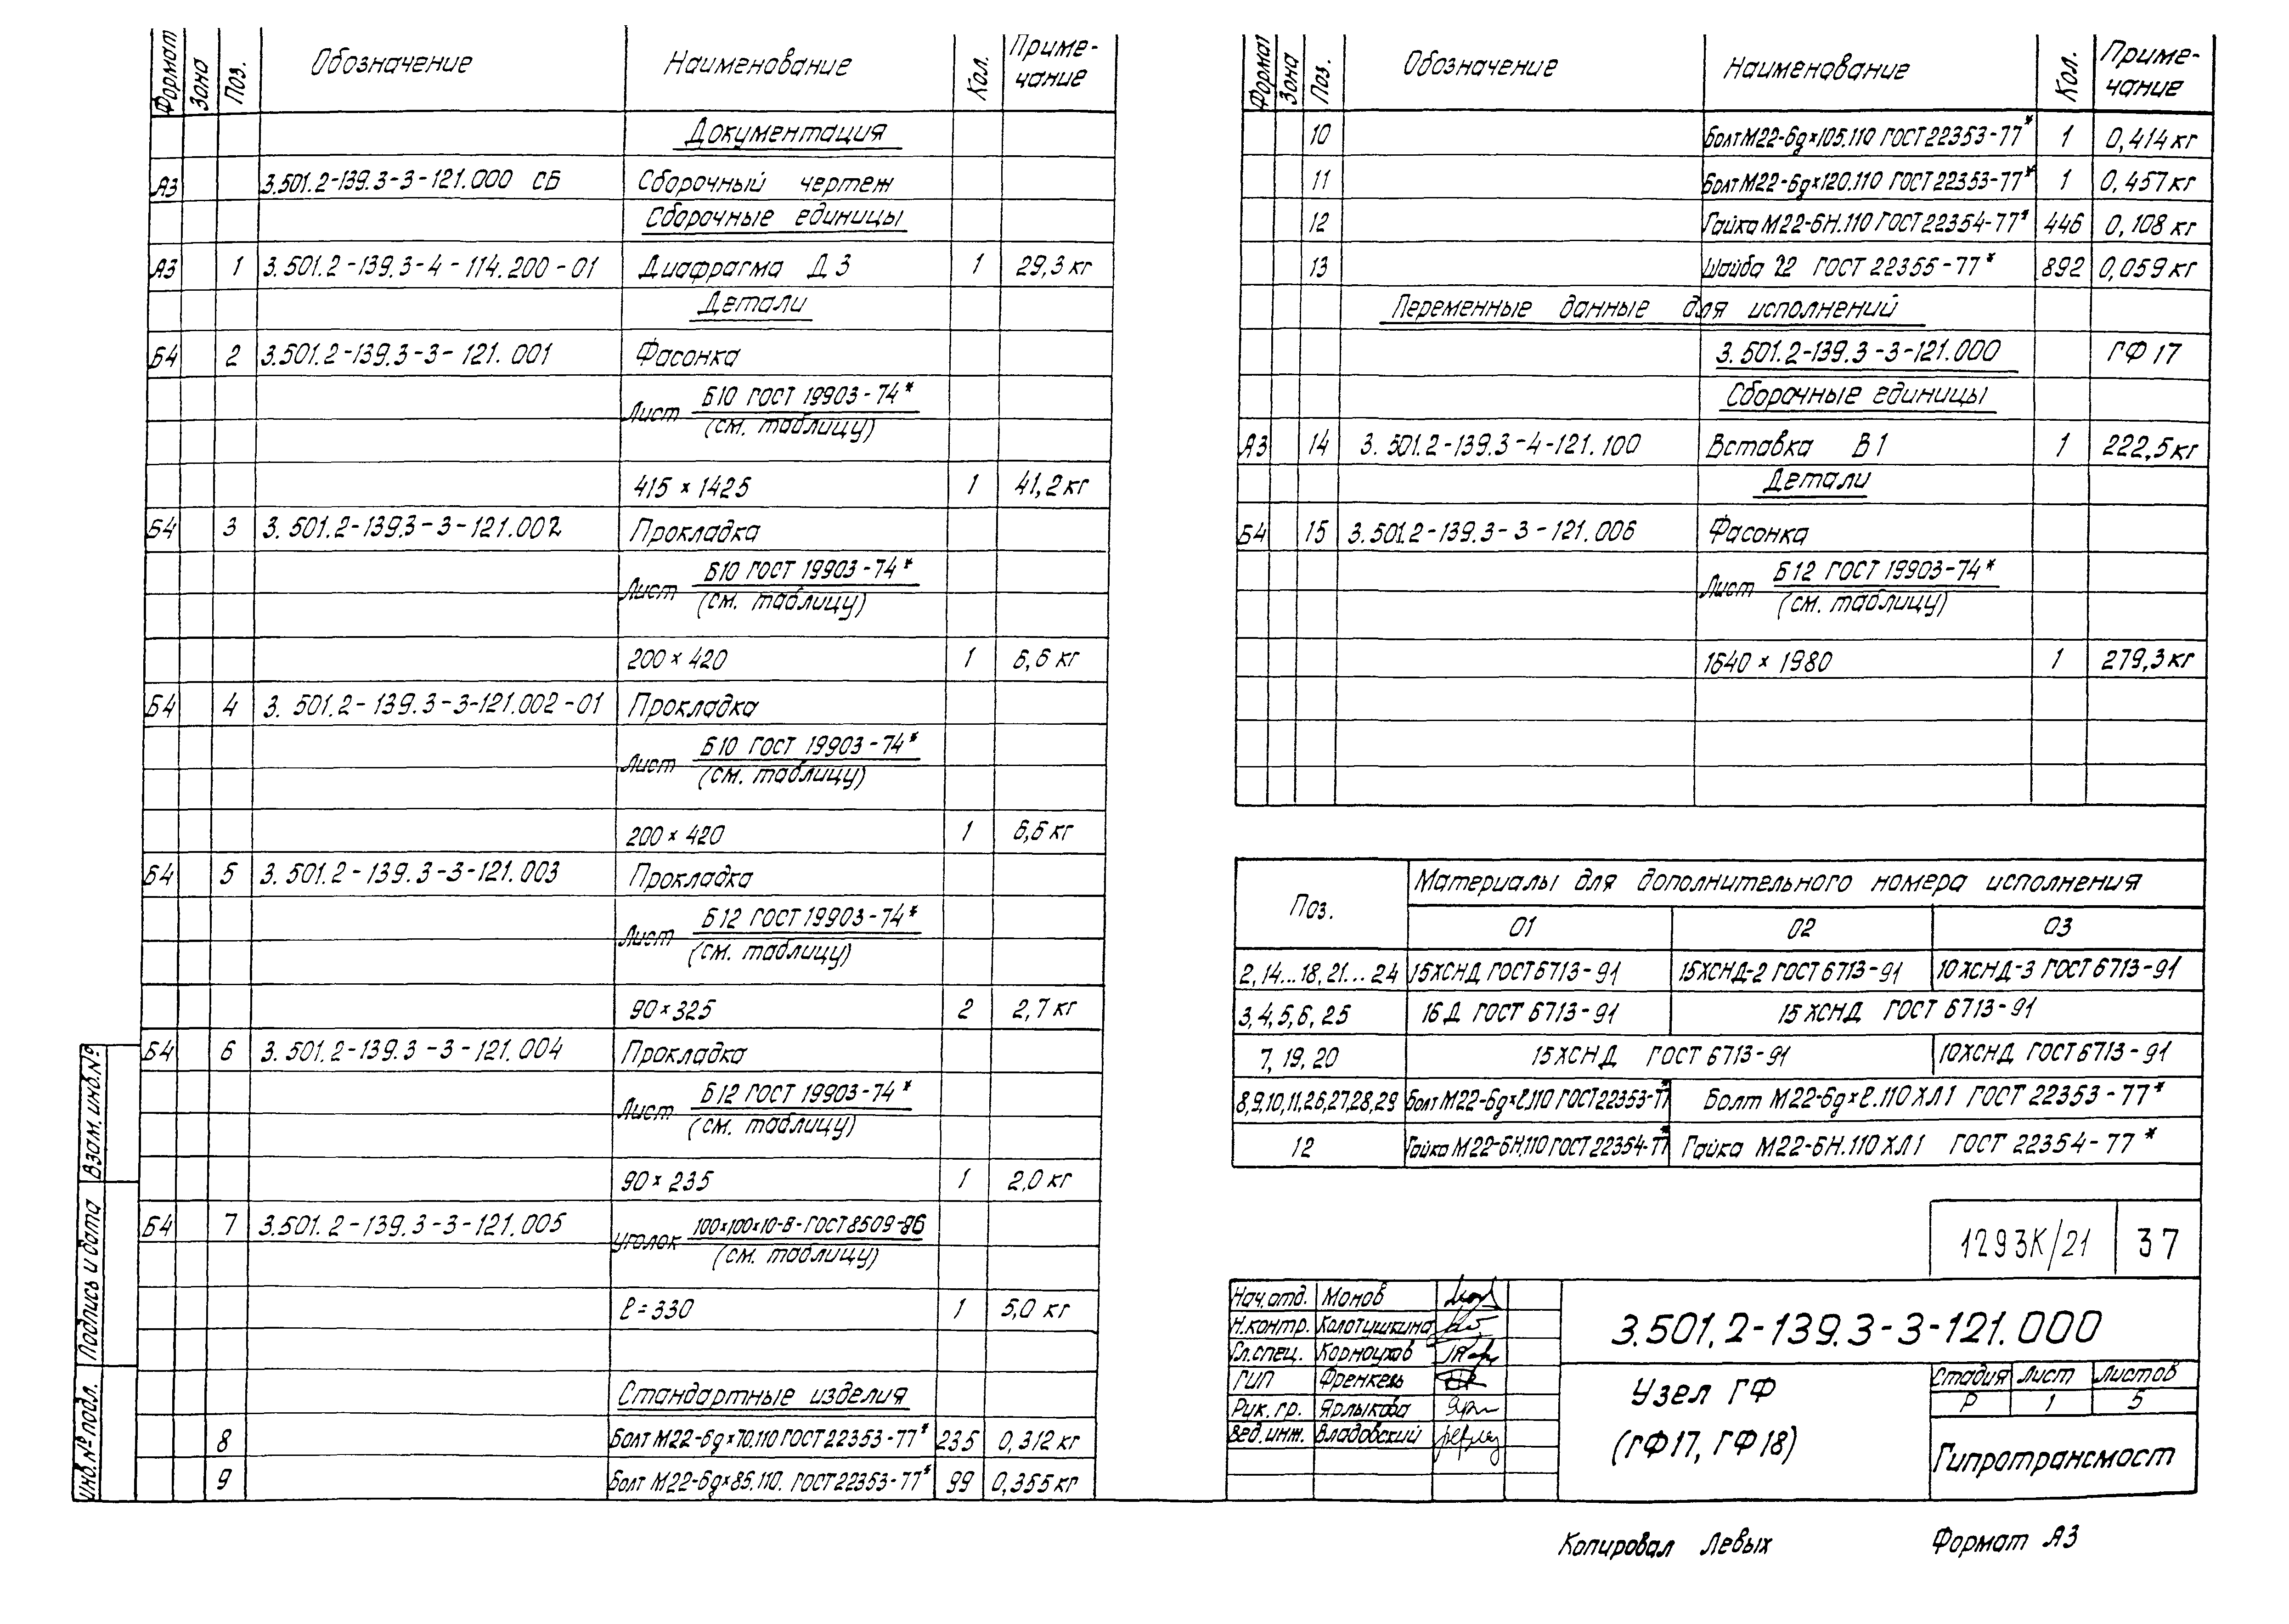 Формат Зона Поз. Обозначение Наименование Кол. Приме-чание
Документация
А3 3.501.2-139.3-3-121.000 СБ Сборочный чертеж
Сборочные единицы
А3 1 3.501.2-139.3-4-114.200-01 Диафрагма Д3 1 29,3 кг
Детали
Б4 2 3.501.2-139.3-3-121.001 Фасонка
Лист Б10 ГОСТ 19903-74*
(см. таблицу)
415 × 1425 1 41,2 кг
Б4 3 3.501.2-139.3-3-121.002 Прокладка
Лист Б10 ГОСТ 19903-74*
(см. таблицу)
200 × 420 1 6,6 кг
Б4 4 3.501.2-139.3-3-121.002-01 Прокладка
Лист Б10 ГОСТ 19903-74*
(см. таблицу)
200 × 420 1 6,6 кг
Б4 5 3.501.2-139.3-3-121.003 Прокладка
Лист Б12 ГОСТ 19903-74*
(см. таблицу)
90 × 325 2 2,7 кг
Б4 6 3.501.2-139.3-3-121.004 Прокладка
Лист Б12 ГОСТ 19903-74*
(см. таблицу)
90 × 235 1 2,0 кг
Б4 7 3.501.2-139.3-3-121.005 Уголок 100×100×10-В-ГОСТ 8509-86
(см. таблицу)
ℓ = 330 1 5,0 кг
Стандартные изделия
8 Болт М22-6g×70.110 ГОСТ 22353-77* 235 0,312 кг
9 Болт М22-6g×85.110. ГОСТ 22353-77* 99 0,355 кг
Взам. инв. №
Подпись и дата
Инв. № подл.
Формат Зона Поз. Обозначение Наименование Кол. Приме-чание
10 Болт М22-6g×105.110 ГОСТ 22353-77* 1 0,414 кг
11 Болт М22-6g×120.110 ГОСТ 22353-77* 1 0,457 кг
12 Гайка М22-6Н.110 ГОСТ 22354-77* 446 0,108 кг
13 Шайба 22 ГОСТ 22355-77* 892 0,059 кг
Переменные данные для исполнений
3.501.2-139.3-3-121.000 ГФ 17
Сборочные единицы
А3 14 3.501.2-139.3-4-121.100 Вставка В1 1 222,5 кг
Детали
Б4 15 3.501.2-139.3-3-121.006 Фасонка
Лист Б12 ГОСТ 19903-74*
(см. таблицу)
1640 × 1980 1 279,3 кг
Поз. Материалы для дополнительного номера исполнения
01 02 03
2, 14...18, 21...24 15ХСНД ГОСТ 6713-91 15ХСНД-2 ГОСТ 6713-91 10ХСНД-3 ГОСТ 6713-91
3, 4, 5, 6, 25 16Д ГОСТ 6713-91 15ХСНД ГОСТ 6713-91
7, 19, 20 15ХСНД ГОСТ 6713-91 10ХСНД ГОСТ 6713-91
8,9,10,11,26,27,28,29 Болт М22-6g×ℓ.110 ГОСТ 22353-77* Болт М22-6g×ℓ.110 ХЛ1 ГОСТ 22353-77*
12 Гайка М22-6Н.110 ГОСТ 22354-77* Гайка М22-6Н.110 ХЛ1 ГОСТ 22354-77*
1293К/21 37
Нач. отд. Монов
Н. контр. Колотушкина
Гл. спец. Корноухов
ГИП Френкель
Рук. гр. Ярлыкова
Вед. инж. Владовский
3.501.2-139.3-3-121.000
Узел ГФ
(ГФ17, ГФ18)
Стадия Лист Листов
Р 1 5
Гипротрансмост
Копировал Левых Формат А3